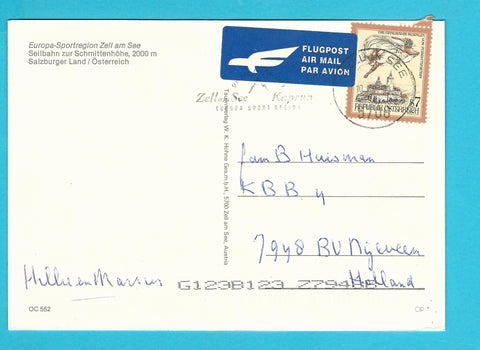 Europa-Sportregion Zell am See
Seilbahn zur Schmittenhöhe, 2000 m
Salzburger Land / Österreich
FLUGPOST
AIR MAIL
PAR AVION
Zell am See Kaprun
EUROPA SPORT REGION
SEE
5700
7
REPUBLIK ÖSTERREICH
W. K. Höhne Ges.m.b.H., 5700 Zell am See, Austria
Fam B Huisman
KBB 4
7948 BV Nijeveen
Holland
en Marcus
G123B123
OC 552